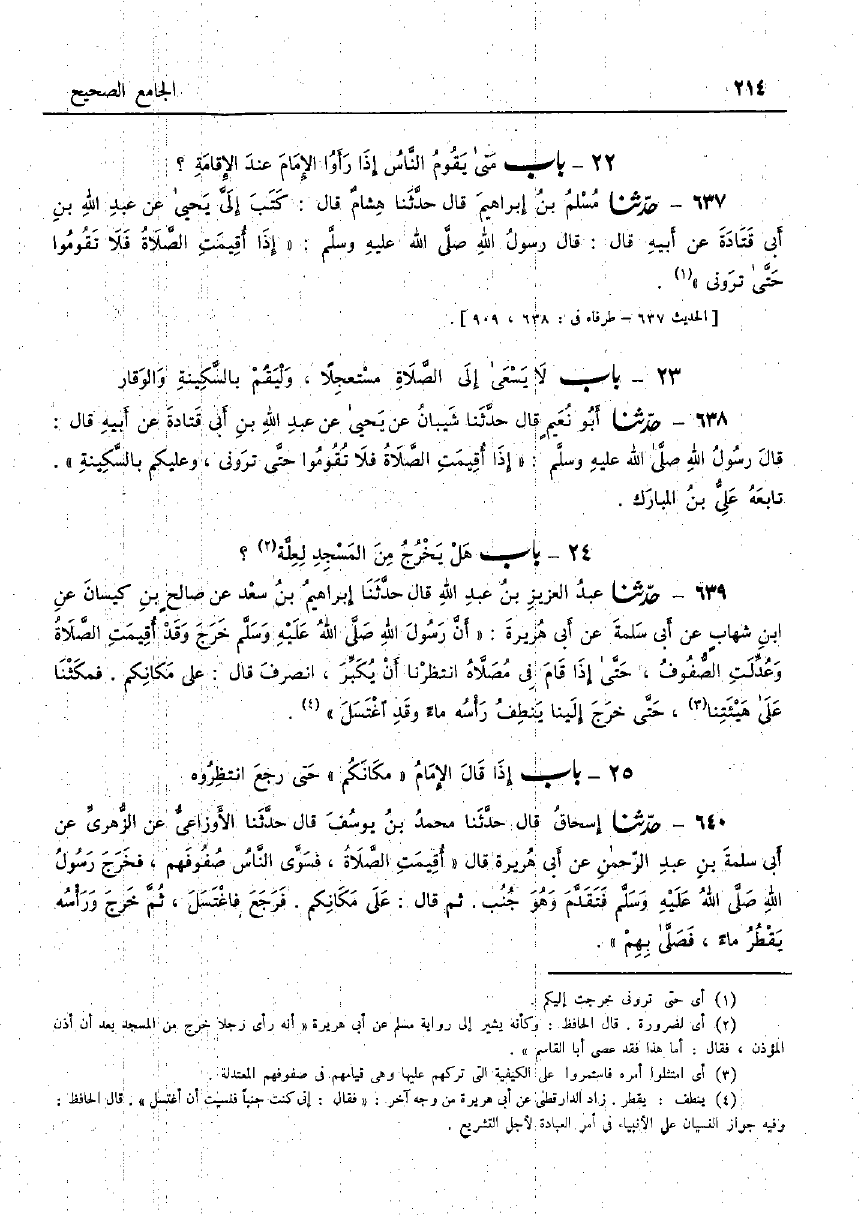 ٢١٤ الجامع الصحيح
٢٢ – باب مَتىٰ يَقُومُ النَّاسُ إِذَا رَأَوُا الإِمَامَ عندَ الإِقامَةِ ؟
٦٣٧ – حدّثنا مُسْلمُ بنُ إبراهيمَ قال حدَّثَنا هِشامٌ قال : كَتَبَ إِلَىَّ يَحيىٰ عن عبدِ اللهِ بنِ
أَبى قَتَادَةَ عن أَبيهِ قال : قال رسولُ اللهِ صلَّى الله عليهِ وسلَّم : « إِذَا أُقِيمَتِ الصَّلَاةُ فَلَا تَقُومُوا
حَتَّىٰ ترَونى »(١) .
[ الحديث ٦٣٧ – طرفاه فى : ٦٣٨ ، ٩٠٩ ] .
٢٣ – باب لَا يَسْعَىٰ إِلَى الصَّلَاةِ مستْعجِلًا ، وَلْيَقُمْ بالسَّكِينةِ وَالوَقار
٦٣٨ – حدّثنا أَبُو نُعَيمٍ قال حدَّثَنا شَيبانُ عن يَحيىٰ عن عبدِ اللهِ بنِ أَبى قَتادةَ عن أَبيهِ قال :
قالَ رسُولُ اللهِ صلَّىٰ الله عليهِ وسلَّم : « إِذَا أُقِيمَتِ الصَّلَاةُ فلَا تُقُومُوا حتَّى ترَونى ، وعليكم بالسَّكِينةِ » .
تابعَهُ عَلِىُّ بنُ المبارَك .
٢٤ – باب هَلْ يَخْرُجُ مِنَ المَسْجِدِ لِعِلَّة(٢) ؟
٦٣٩ – حدّثنا عبدُ العزيزِ بنُ عبدِ اللهِ قال حدَّثَنَا إبراهيمُ بنُ سعْد عن صالحِ بنِ كَيسانَ عنِ
ابنِ شهابٍ عن أَبى سَلمةَ عن أَبى هُرَيرةَ : « أَنَّ رَسُولَ اللهِ صَلَّى اللهُ عَلَيْهِ وَسَلَّم خَرَجَ وَقَدْ أُقِيمَتِ الصَّلَاةُ
وَعُدِّلَتِ الصُّفُوفُ ، حَتَّىٰ إِذَا قَامَ فى مُصَلَّاهُ انتظرْنا أَنْ يُكَبِّرَ ، انصرفَ قال : على مَكَانِكم . فمكثْنَا
عَلَىٰ هَيْئَتِنا(٣) ، حَتَّى خرَجَ إِلَينا يَنطِفُ رَأْسُه ماءً وقَدِ ٱغْتَسَلَ » (٤) .
٢٥ – باب إِذَا قَالَ الإِمَامُ « مكانَكُم » حَتى رجعَ انتظِرُوه
٦٤٠ – حدّثنا إسحاقُ قال حدَّثَنا محمدُ بنُ يوسُفَ قال حدَّثَنا الأَوزاعىُّ عنِ الزُّهرىِّ عن
أَبى سلمةَ بنِ عبدِ الرّحمٰنِ عن أَبى هُريرة قال « أُقِيمَتِ الصَّلَاةُ ، فسَوَّى النَّاسُ صُفُوفَهم ، فَخَرَجَ رَسُولُ
اللهِ صَلَّى اللهُ عَلَيْهِ وَسَلَّم فَتَقدَّمَ وَهُوَ جُنُب . ثم قال : عَلَى مَكَانِكم . فَرَجَعَ فاغْتَسَلَ ، ثُمَّ خَرجَ وَرَأْسُه
يَقْطُرُ ماءً ، فَصَلَّىٰ بِهِمْ » .
(١) أى حتى ترونى خرجت إليكم .
(٢) أى لضرورة . قال الحافظ : وكأنه يشير إلى رواية مسلم عن أبى هريرة « أنه رأى رجلا خرج من المسجد بعد أن أذن
المؤذن ، فقال : أما هذا فقد عصى أبا القاسم » .
(٣) أى امتثلوا أمره فاستمروا على الكيفية التى تركهم عليها وهى قيامهم فى صفوفهم المعتدلة .
(٤) ينطف : يقطر . زاد الدارقطنى عن أبى هريرة من وجه آخر : « فقال : إنى كنت جنباً فنسيت أن أغتسل » . قال الحافظ :
وفيه جواز النسيان على الأنبياء فى أمر العبادة لأجل التشريع .